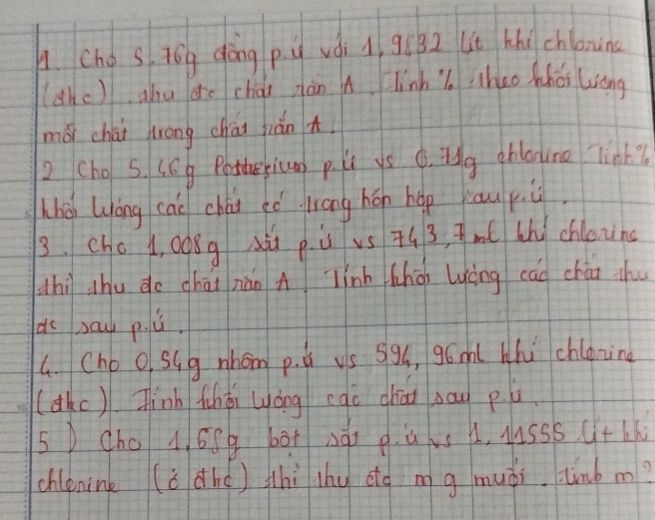 1. Cho 5,76g đồng p.ứ với 1,9832 lít khí chlorine
(đkc) thu đc chất rắn A. Tính % theo khối lượng
mỗi chất trong chất rắn A.
2. Cho 5,46g Pottassium p.ứ vs 0,71g chlorine Tính %
khối lượng các chất có trong hỗn hợp sau p.ứ.
3. Cho 1,008g sắt p.ứ vs 743,7 ml khí chlorine
thì thu đc chất rắn A. Tính khối lượng các chất thu
đc sau p.ứ.
4. Cho 0,54g nhôm p.ứ vs 594,96ml khí chlorine
(đkc). Tính khối lượng các chất sau p.ứ.
5) Cho 1,68g bột sắt p.ứ vs 1,11555 lít khí
chlorine (ở đkc) thì thu đc m g muối. tính m?